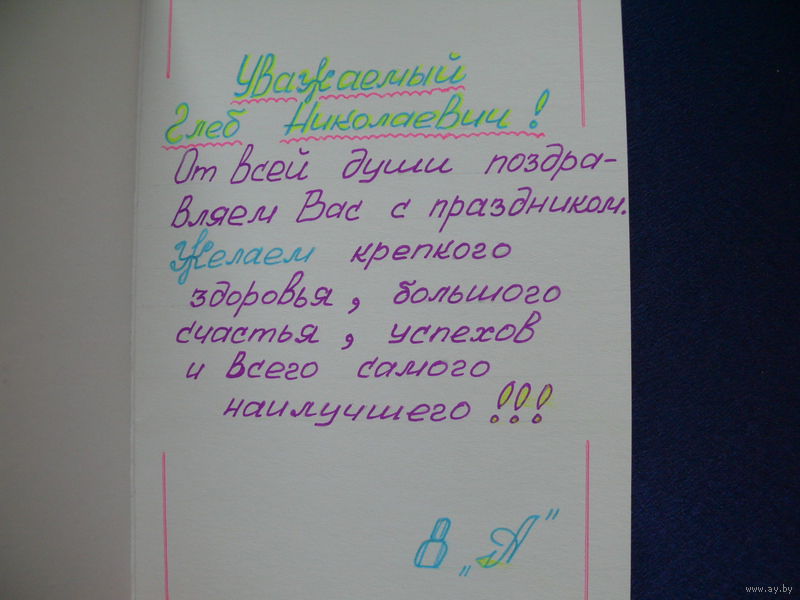 Уважаемый
Глеб Николаевич!
От всей души поздра-
вляем Вас с праздником.
Желаем крепкого
здоровья, большого
счастья, успехов
и всего самого
наилучшего!!!
8 „А"
www.ay.by